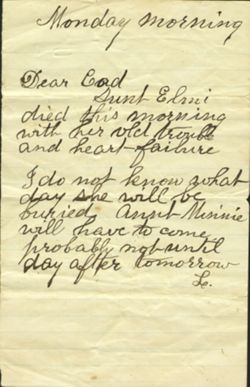 Monday morning
Dear Cad
Aunt Elmi
died this morning
with her old trouble
and heart failure
I do not know what
day she will be
buried, Aunt Minnie
will have to come
probably not until
day after tomorrow
L.